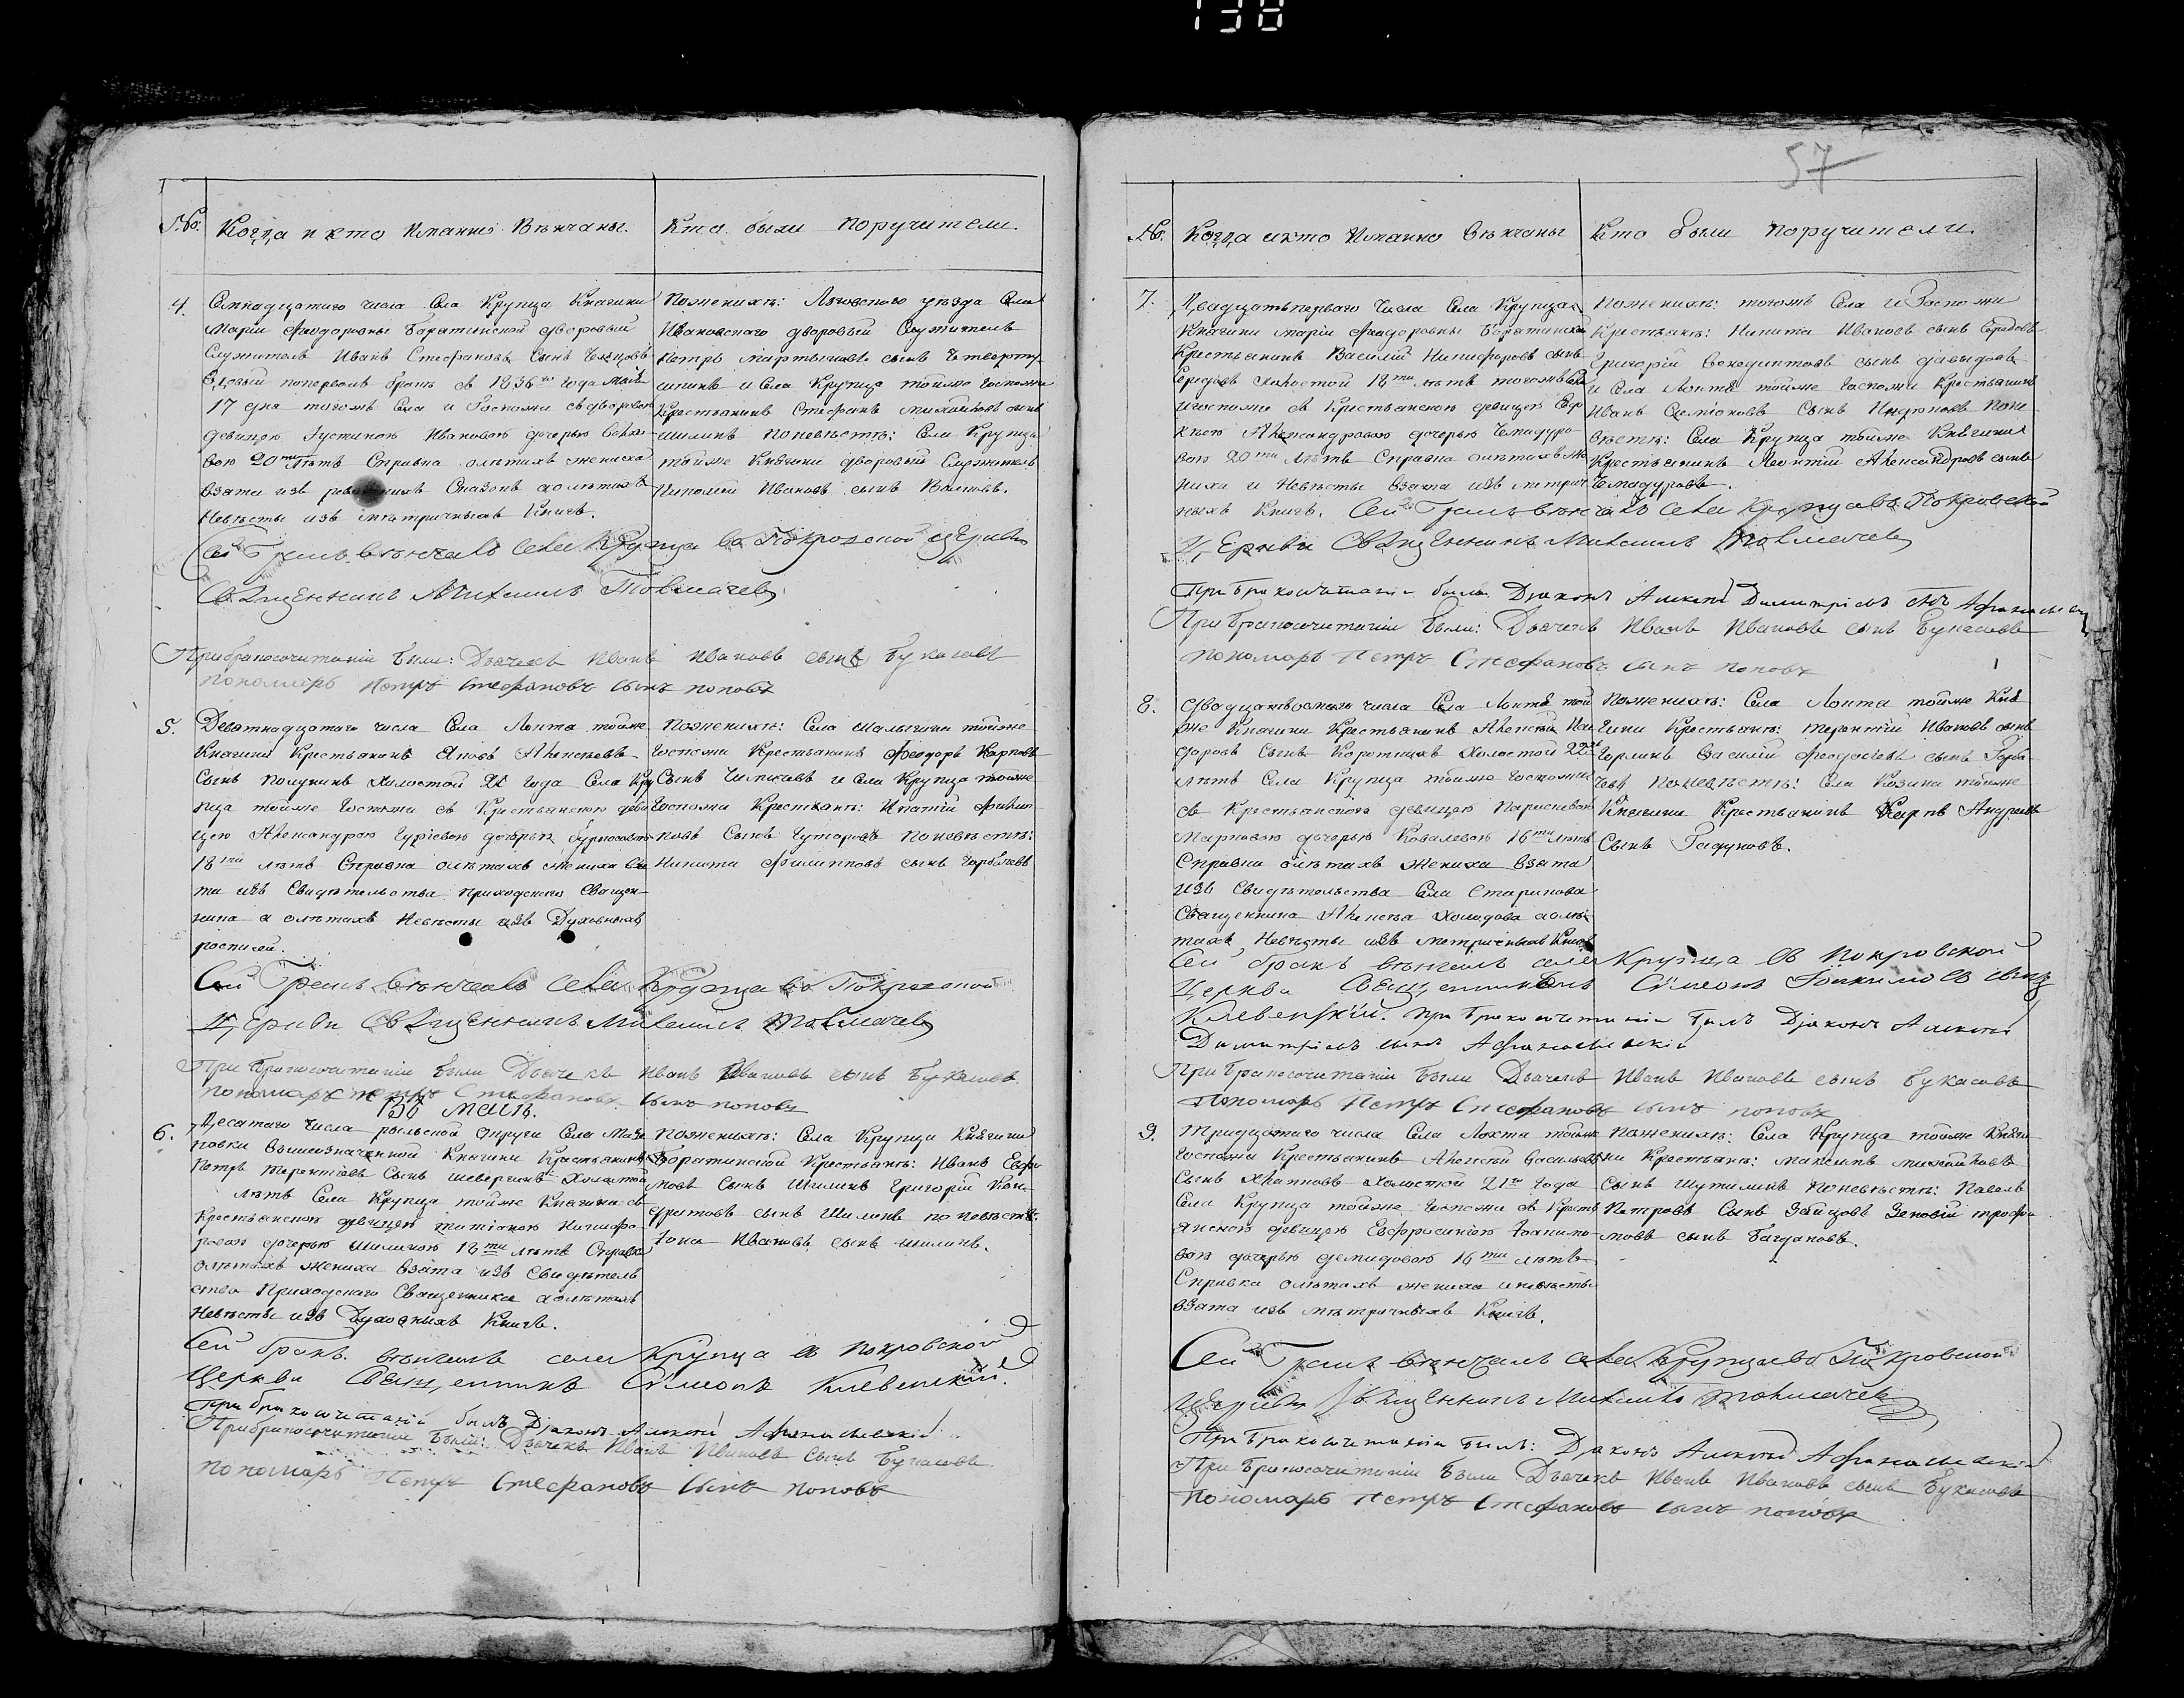 138
№: Когда и кто имянно Вѣнчаны. Кто были поручители.
4. Семнадцатаго числа Села Крупца Княгини
Маріи Феодоровны Барятинской дворовый
Служитель Иванъ Стефановъ Сынъ
вдовый поперьвомъ бракѣ съ 1836го года Майя
17 дня тогожъ Села и Госпожи съ дворовою
девицею Іустиною Ивановою дочерью
вою 20ти лѣтъ Справка олѣтахъ жениха
взята изъ Сказокъ аолѣтахъ
Невѣсты изъ мѣтричныхъ Книгъ.
Поженихѣ: Льговскаго уѣзда Села
Ивановскаго дворовый Служитель
Петръ Мартыновъ сынъ Четверту
шкинъ и Села Крупца тойже госпожи
Крестьянинъ Стефанъ Михайловъ сынъ
Шилинъ поневѣстѣ: Села Крупца
тойже Княгини дворовый Служитель
Иванов сынъ
Сей Бракъ вѣнчалъ села Крупца въ Покровской церкви
Священникъ Михаилъ Толмачевъ
Прибракосочитаніи были: Дьячекъ Иванъ Ивановъ сынъ Букасовъ
пономарь Петръ Стефановъ сынъ поповъ
5. Девятнадцатаго числа Села Локта тойже
Княгини Крестьянинъ Яковъ Алексѣевъ
Сынъ Полунинъ Холостой 21 года Села Кру
пца тойже госпожи съ Крестьянскою деви
цею Александрою Гуріевою дочерью
18ти лѣтъ Справка олѣтахъ жениха взя
та изъ Свидѣтельства приходскаго Священ
ника а олѣтахъ Невѣсты изъ Духовныхъ
росписей.
Поженихѣ: Села тойже
госпожи Крестьянинъ Феодоръ Карповъ
Сынъ и Села Крупца тойже
госпожи Крестьянъ: Игнатій Филип
повъ Сынъ поневѣстѣ:
Никита Филипповъ сынъ Горбачевъ
Сей Бракъ вѣнчалъ села Крупца въ Покровской
Церкви Священникъ Михаилъ Толмачевъ
При бракосочитаніи были Дьячекъ Иванъ Ивановъ сынъ Букасовъ
пономарь Петръ Стефановъ сынъ поповъ
Маія.
6. Десятаго числа рыльской округи Села Маза
повки вышеозначенной Княгини Крестьянинъ
Петръ Терентіевъ Сынъ Шевергинъ Холостой
лѣтъ Села Крупца тойже Княгини съ
Крестьянскою девицею Татіаною Никифо
ровою дочерью Шилиною 18ти лѣтъ Справка
олѣтахъ жениха взята изъ Свидѣтель
ства Приходскаго Священника аолѣтахъ
Невѣсты изъ Духовныхъ Книгъ.
Поженихѣ: Села Крупца Княгини
Боратинской Крестьянъ: Иванъ Ефи
мовъ Сынъ Шилинъ Григорій Кон
дратовъ сынъ Шилинъ поневѣстѣ:
Іона Ивановъ сынъ Шилинъ.
Сей бракъ вѣнчалъ села Крупца въ Покровской
Церкви Священникъ Сѵмеонъ Клевенскій.
При бракосочитаніи былъ Діаконъ Алексѣй Афанасьевскій
Прибракосочитаніи были: Дьячекъ Иванъ Ивановъ сынъ Букасовъ
пономарь Петръ Стефановъ сынъ поповъ
57
№. Когда икто Имянно Вѣнчаны Кто были поручители.
7. Двадцатьперваго Числа Села Крупца
Княгини Маріи Феодоровны Боратинской
Крестьянинъ Василій Никифоровъ сынъ
Середовъ холостой 18ти лѣтъ тогожъ Села
игоспожи съ Крестьянскою девицею
Александровою дочерью Чемадуро
вою 20ти лѣтъ Справка олѣтахъ же
ниха и Невѣсты взята изъ метрич
ныхъ Книгъ.
Поженихѣ: тогожъ Села и Госпожи
Крестьянъ: Никита Ивановъ сынъ Середовъ
Григорій сынъ Давыдовъ
и Села Локтя тойже госпожи Крестьянинъ
Иванъ Семіоновъ Сынъ поне
вѣстѣ: Села Крупца тойже Княгини
Крестьянинъ Леонтій Александровъ сынъ
Чемадуровъ.
Сей Бракъ вѣнчалъ села Крупца въ Покровской
Церкви Священникъ Михаилъ Толмачевъ
При Бракосочитаніи былъ Діаконъ Алексѣй Димитріевъ сынъ Афанасьевскій
При бракосочитаніи были: Дьячекъ Иванъ Ивановъ сынъ Букасовъ
пономарь Петръ Стефановъ сынъ поповъ
8. Двадцатьосмаго числа Села Локтя той
же Княгини Крестьянинъ Алексѣй
доровъ сынъ Коротких Холостой
лѣтъ Села Крупца тойже госпожи
съ Крестьянскою девицею Параскевою
Марковою дочерью Ковалевою 16ти лѣтъ
Справка олѣтахъ жениха взята
изъ Свидѣтельства Села
Священника Алексѣя аолѣ
тахъ Невѣсты изъ метричныхъ Книгъ
Поженихѣ: Села Локтя тойже Кня
гини Крестьянъ: Терентій Ивановъ сынъ
Василій Феодосіевъ сынъ Горба
чевъ поневѣстѣ: Села Козина тойже
Княгини Крестьянинъ Карпъ Андреевъ
Сынъ
Сей бракъ вѣнчалъ села Крупца въ Покровской
Церкви Священникъ Сѵмеонъ Іоакимовъ сынъ
Клевенскій. При бракосочитаніи былъ Діаконъ Алексѣй
Димитріевъ сынъ Афанасьевскій
При Бракосочитаніи были Дьячекъ Иванъ Ивановъ сынъ Букасовъ
Пономарь Петръ Стефановъ сынъ поповъ
9. Тридцатаго числа Села Локтя тойже
госпожи Крестьянинъ Алексѣй Васильевъ
Сынъ Холостой 21го года
Села Крупца тойже госпожи съ Кресть
янскою девицею Евфросиніею Іоакимо
вою дочерью Демидовою 16ти лѣтъ
Справка олѣтахъ жениха иневѣсты
взята изъ мѣтричныхъ Книгъ.
Поженихѣ: Села Крупца тойже Княги
ни Крестьянъ: Максимъ Михайловъ
сынъ поневѣстѣ: Павелъ
Петровъ Сынъ Зайцовъ Зеновій Трофи
мовъ сынъ Багдановъ.
Сей Бракъ вѣнчалъ села Крупца въ Покровской
церкви Священникъ Михаилъ Толмачевъ
При Бракосочитаніи былъ: Діаконъ Алексѣй Афанасьевскій
При бракосочитаніи были Дьячекъ Иванъ Ивановъ сынъ Букасовъ
пономарь Петръ Стефановъ сынъ поповъ